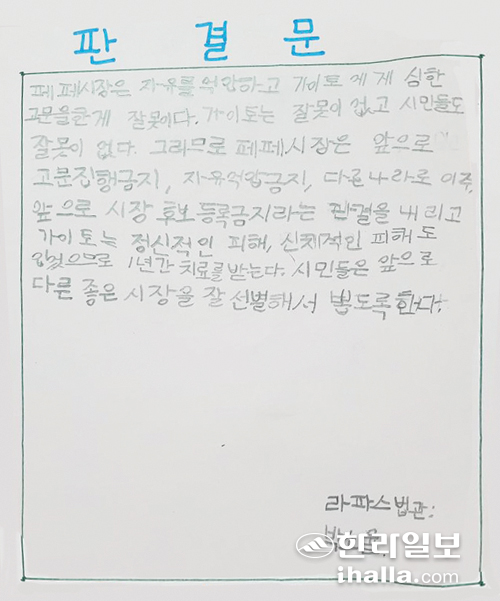 판 결 문
페페시장은 자유를 억압하고 가이토에게 심한
고문을한게 잘못이다. 가이토는 잘못이 없고 시민들도
잘못이 없다. 그러므로 페페시장은 앞으로
고문집행금지, 자유억압금지, 다른나라로 이주,
앞으로 시장 후보 등록금지라는 판결을 내리고
가이토는 정신적인 피해, 신체적인 피해도
입었으므로 1년간 치료를 받는다. 시민들은 앞으로
다른 좋은 시장을 잘 선별해서 뽑도록 한다.
라파스법관:
한라일보
ihalla.com